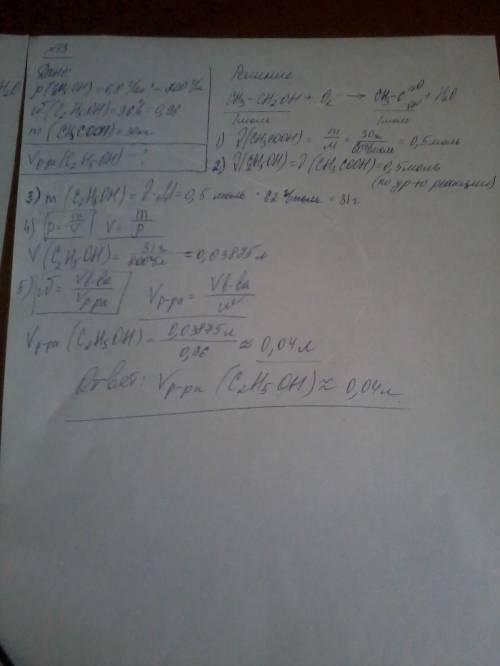 Дано:
ρ(C₂H₅OH) = 0,8 г/см³ = 800 г/л
ω(C₂H₅OH) = 96% = 0,96
m(CH₃COOH) = 30г
Vр-ра(C₂H₅OH) - ?
Решение
CH₃-CH₂OH + O₂ → CH₃-C + H₂O
1моль 1моль
1) ν(CH₃COOH) = m/M = 30г/ = 0,5 моль
2) ν(C₂H₅OH) = ν(CH₃COOH) = 0,5 моль
(по ур-ю реакции)
3) m(C₂H₅OH) = ν·M = 0,5 моль · 62 г/моль = 31г
4) ρ = m/V V = m/ρ
V(C₂H₅OH) = 31г/800г/л = 0,03875 л
5) ω = Vв-ва/Vр-ра Vр-ра = Vв-ва/ω
Vр-ра(C₂H₅OH) = 0,03875л/0,96 ≈ 0,04л
Ответ: Vр-ра(C₂H₅OH) ≈ 0,04л.